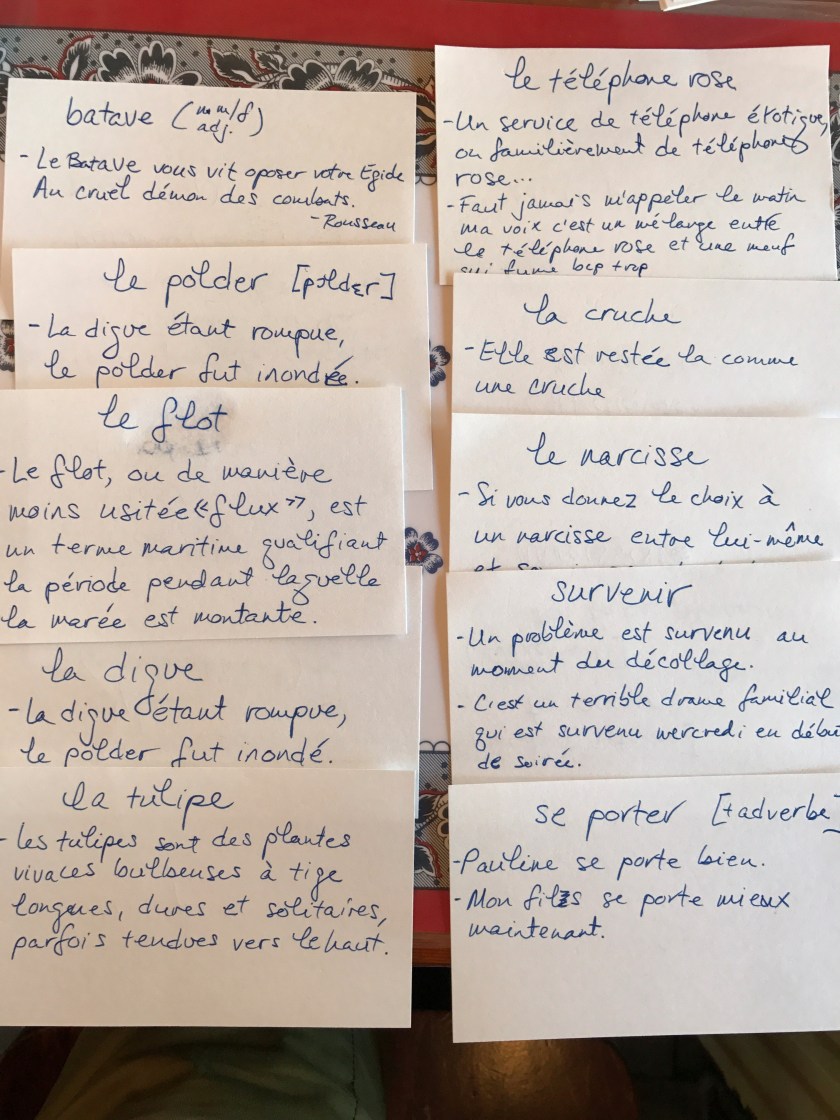 batave (n m/f
adj.)
- Le Batave vous vit oposer votre Egide
Au cruel démon des combats.
- Rousseau
le polder [pɔldɛr]
- La digue étant rompue,
le polder fut inondé.
le flot
- Le flot, ou de manière
moins usitée «flux», est
un terme maritime qualifiant
la période pendant laquelle
la marée est montante.
la digue
- La digue étant rompue,
le polder fut inondé.
la tulipe
- Les tulipes sont des plantes
vivaces bulbeuses à tige
longues, dures et solitaires,
parfois tendues vers le haut.
le téléphone rose
- Un service de téléphone érotique,
ou familièrement de téléphone
rose...
- Faut jamais m'appeler le matin
ma voix c'est un mélange entre
le téléphone rose et une meuf
qui fume bcp trop
la cruche
- Elle est restée la comme
une cruche
le narcisse
- Si vous donnez le choix à
un narcisse entre lui-même
et
survenir
- Un problème est survenu au
moment du décollage.
- C'est un terrible drame familial
qui est survenu mercredi en début
de soirée.
se porter [+adverbe]
- Pauline se porte bien.
- Mon fils se porte mieux
maintenant.